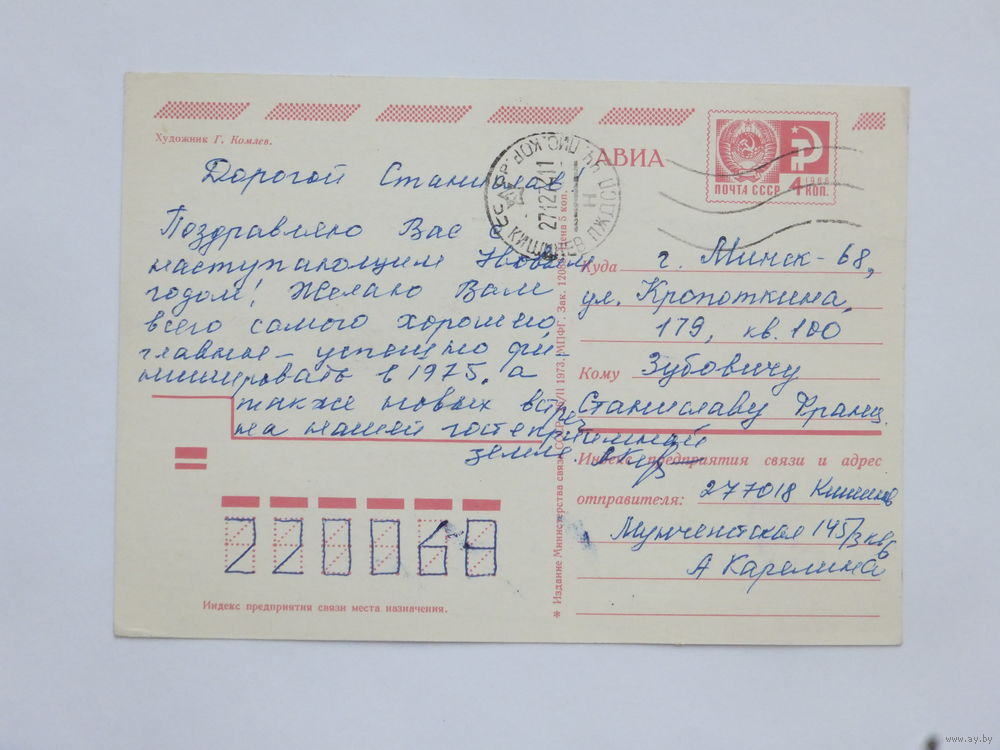 Художник Г. Комлев.
АВИА
ПОЧТА СССР 4 КОП.
1966
27127411
КИШИНЕВ ПЖДП
Дорогой Станислав
Поздравляю Вас с
наступающим Новым
годом! Желаю Вам
всего самого хорошего,
главное – успешно фи-
нишировать в 1975, а
также новых встреч
на нашей гостеприимной
земле.
Куда г. Минск-68,
ул. Кропоткина,
179, кв. 100
Кому Зубовичу
Станиславу Франц.
Индекс предприятия связи и адрес
отправителя: 277018 Кишинев
Мунчештская 145/3 кв 6
А Карелина
220068
Индекс предприятия связи места назначения.
* Издание Министерства связи СССР. 1973. МПФГ. Зак. Цена 5 коп.
www.ay.by